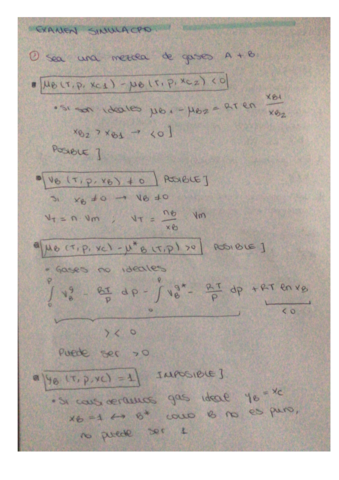 EXAMEN SIMULACRO
① Sea una mezcla de gases A + B.
• μB (T, p, xC1) - μB (T, p, xC2) < 0
• Si son ideales μB1 - μB2 = RT ln xB1/xB2
xB2 > xB1 → < 0 ]
POSIBLE ]
• VB (T, p, xB) ≠ 0 POSIBLE ]
Si xB ≠ 0 → VB ≠ 0
VT = n Vm , VT = nB/xB Vm
• μB (T, p, xC) - μ*B (T, p) > 0 POSIBLE ]
• Gases no ideales
∫₀ᵖ VBᵍ - RT/p dp - ∫₀ᵖ VBᵍ* - RT/p dp + RT ln xB
< 0
> < 0
Puede ser > 0
• γB (T, p, xC) = 1 IMPOSIBLE ]
• Si consideramos gas ideal γB = xC
xB = 1 ↔ B* como B no es puro,
no puede ser 1